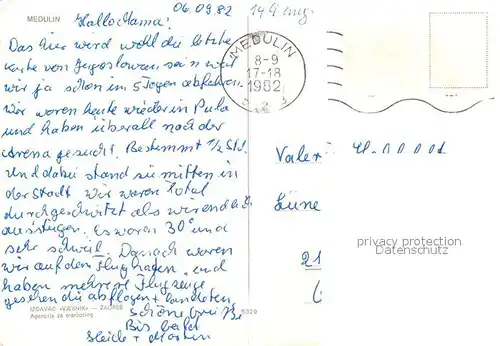 MEDULIN
06.09.82
Hallo Mama!
Das hier wird wohl die letzte
Karte von Jugoslawien sein weil
wir ja schon in 5 Tagen abfahren.
Wir waren heute wieder in Pula
und haben überall nach der
Arena gesucht. Bestimmt 1/2 Std.
Und dabei stand sie mitten in
der Stadt. Wir waren total
durchgeschwitzt als wir endlich
ausstiegen. Es waren 30° und
sehr schwül. Danach waren
wir auf dem Flughafen und
haben mehrere Flugzeuge
gesehen die abflogen + landeten.
Schöne
Bis bald
Heide + Morten
IZDAVAČ «VJESNIK» — ZAGREB
Agencija za marketing
5329
MEDULIN
8-9
17-18
1982
Valer
Lüne
21
privacy protection
Datenschutz